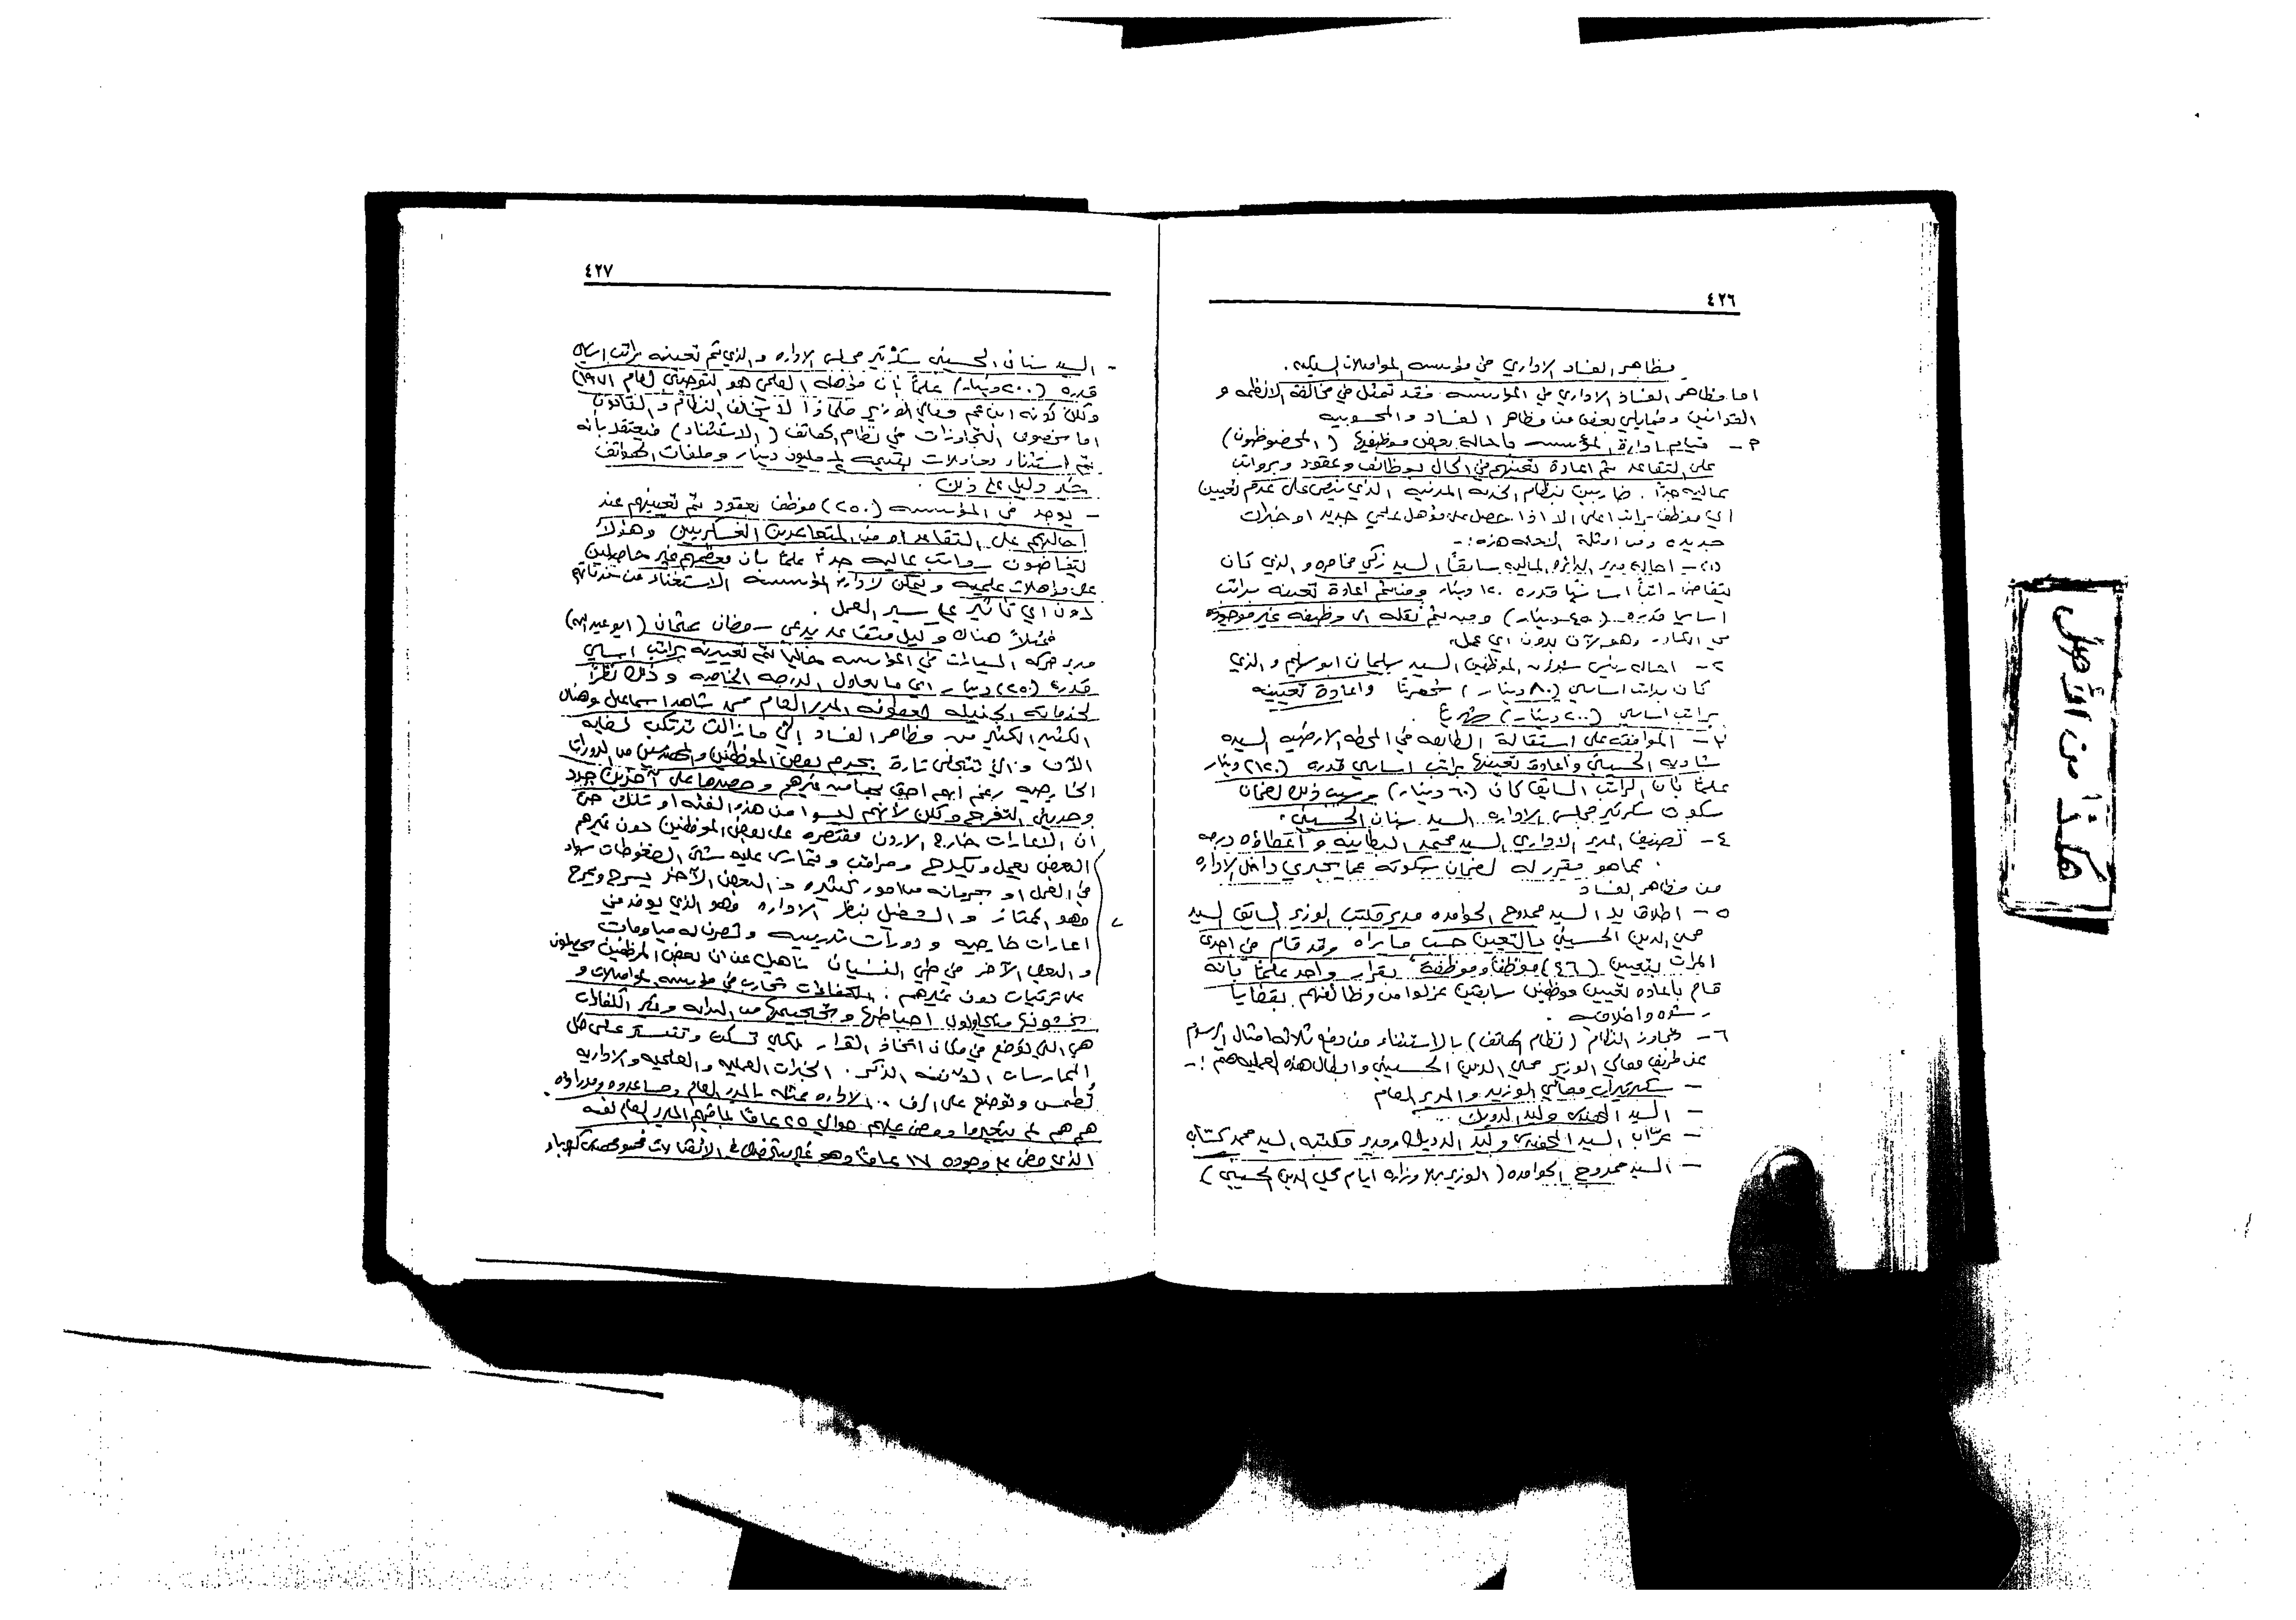 ٤٢٦
مظاهر الفساد الاداري في مؤسسه المواصلات السلكيه.
اما مظاهر الفساد الاداري في المؤسسه فقد تمثل في مخالفة الانظمه و
القوانين وفيمايلي بعض من مظاهر الفساد والمحسوبيه
٢- قيام ادارة المؤسسه باحالة بعض موظفيها (المحضوظون)
على التقاعد ثم اعادة تعينهم في الحال بوظائف وعقود وبرواتب
عاليه جداً. ضاربين بنظام الخدمه المدنيه الذي ينص على عدم تعيين
اي موظف براتب اعلى الا اذا حصل على مؤهل علمي جديد او خبرات
جديده ومن امثلة الاحاله هذه:-
احالة مدير الدائره الماليه سابقاً السيد زكي مخامره والذي كان
يتقاضى راتباً اساسياً قدره ١٢٠ دينار ومن ثم اعادة تعينه براتب
اساسي قدره (٤٥٠ دينار) وجه ثم نقله الى وظيفه غير موجوده
في الكادر وهو الآن بدون اي عمل.
٢- احاله رئيس شؤون الموظفين السيد سليمان ابو سليم والذي
كان براتب اساسي (٨٠ دينار) شهرياً واعادة تعيينه
براتب اساسي (٢٠٠ دينار)
٣- الموافقه على استقالة الطابعه في المحطه الارضيه السيده
شاديه الحسيني واعادة تعينها براتب اساسي قدره (٢١٢٠ دينار
علماً بأن الراتب السابق كان (٦٠ دينار) وسبب ذلك لضمان
سكوت سكرتير مجلس الاداره السيد سنان الحسيني.
٤- تصنيف المدير الاداري السيد محمد البطاينه و أعطاؤه درجه
عما هو مقرر له لضمان سكوته عما يجري داخل الاداره
من مظاهر الفساد
٥- اطلاق يد السيد ممدوح الحوامده مدير مكتب الوزير السابق السيد
محي الدين الحسيني بالتعين حسب ما يراه وقد قام في احدى
المرات بتعيين (٤٦) موظفاً وموظفة بقرار واحد علماً بأنه
قام باعاده تعيين موظفين سابقين عزلوا من وظائفهم بقضايا
رشوه واخلاقيه.
٦- تجاوز النظام (نظام الهاتف) بالاستثناء من دفع ثلاثة امثال الرسوم
عن طريق معالي الوزير محي الدين الحسيني وابطال هذه العمليه هم:-
- سكرتيرات معالي الوزير والمدير العام
- السيد المهندس وليد الدويك
- عرّاب السيد المهندس وليد الدويك ومدير مكتبه السيد محمد كستابه
- السيد ممدوح الحوامده (الوزير بلا وزاره ايام محي الدين الحسيني)
٤٢٧
- السيد سنان الحسيني سكرتير مجلس الاداره والذي تم تعيينه براتب اساسي
قدره (٢٠٠ دينار) علماً بان مؤهله العلمي هو التوجيهي لعام ١٩٧١)
ولكن كونه ابن عم معالي الوزير فلماذا لا يخالف النظام والقانون
اما بخصوص التجاوزات في نظام الهاتف (الاستثناء) فيعتقد بأنه
تم استثناء معاملات بقيمه مليون دينار وملفات الهواتف
خير دليل على ذلك.
- يوجد في المؤسسه (٢٥٠) موظف بعقود تم تعيينهم عند
احالتهم على التقاعد او من المتقاعدين العسكريين وهؤلاء
يتقاضون رواتب عاليه جداً علماً بأن معظمهم غير حاصلين
على مؤهلات علميه ويمكن لادارة المؤسسه الاستغناء عن خدماتهم
دون اي تأثير على سير العمل.
فمثلاً هناك وكيل متقاعد يدعى رمضان عثمان (ابو عبدالله)
مدير حركه السيارات في المؤسسه حالياً تم تعيينه براتب اساسي
قدره (٢٥٠) دينار اي ما يعادل الدرجه الخاصه وذلك نظراً
لخدماته الجليله لعطوفه المدير العام محمد شاهد اسماعيل وهناك
الكثير الكثير من مظاهر الفساد التي ما زالت ترتكب لغايه
الآن والتي تتجلى تارة بحرم بعض الموظفين والمهندسين من الدورات
الخارجيه رغم انهم احق بها من غيرهم وحصرها على آخرين جدد
وحديثي التخرج ولكن لأنهم ليسوا من هذه الفئه او تلك حتى
ان الاعارات خارج الاردن مقتصره على بعض الموظفين دون غيرهم
البعض يعمل ويكدح ومراقب وتمارس عليه شتى الضغوطات سواء
في العمل او بحرمانه من امور كثيره و البعض الآخر يسرح ويمرح
فهو الممتاز و المفضل بنظر الاداره فهو الذي يوفد في
اعارات خارجيه ودورات تدريبيه وتصرف له مياومات
و البعض الآخر في طي النسيان ناهيك عن ان بعض الموظفين يحصلون
على ترقيات دون غيرهم. الكفاءات تحارب في مؤسسه المواصلات و
يخشونها فيحاولون احباطها وتحجيمها من البدايه وغير الكفاءات
هي التي توضع في مكان اتخاذ القرار لكي تسكت وتتستر على كل
الممارسات الآنفه الذكر. الخبرات العمليه والعلميه والاداريه
تُطمس وتوضع على الرف .. الاداره ممثله بالمدير العام ومساعدوه ومدراؤه
هم هم لم يتغيروا ومضى عليهم حوالي ٢٥ عاماً بما فيهم المدير العام نفسه
الذي مضى على وجوده ١٧ عاماً وهو غير متخصص في الاتصالات فهو مهندس كهرباء
هكذا من الأصل